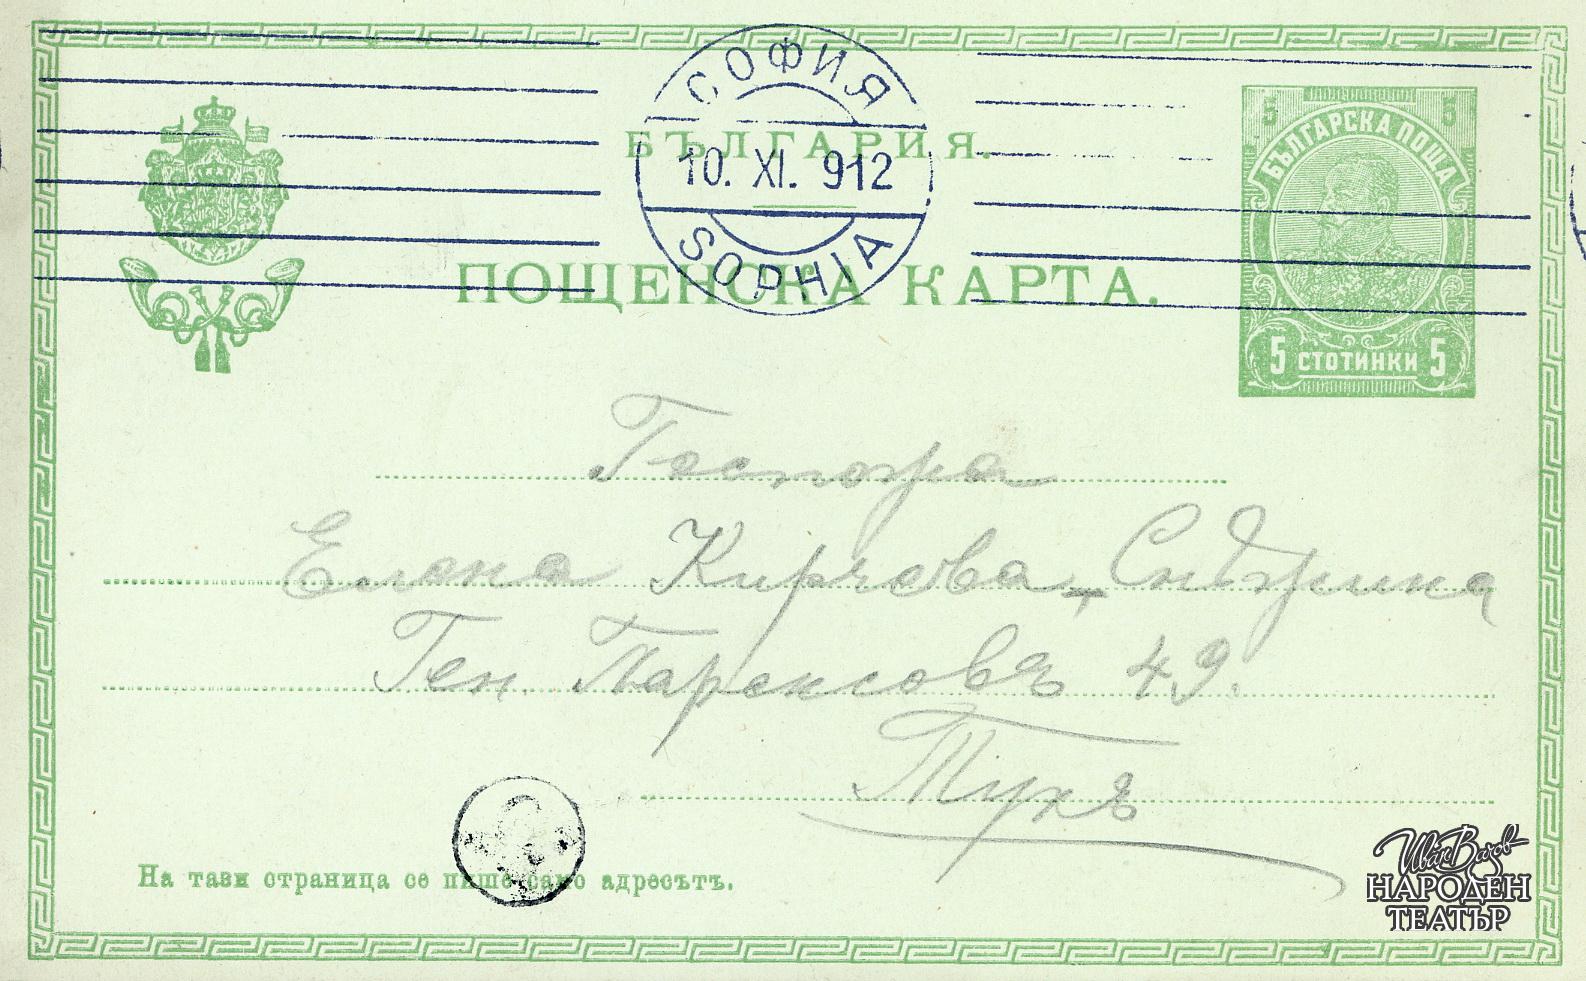 СОФИЯ
БЪЛГАРИЯ.
10. XI. 912
SOPHIA
ПОЩЕНСКА КАРТА.
5 5
БЪЛГАРСКА ПОЩА
5 СТОТИНКИ 5
Госпожа
Елена Кирчова
Ген. Паренсовъ 49.
Тукъ
На тази страница се пише само адресътъ.
Иван Вазов
НАРОДЕН
ТЕАТЪР